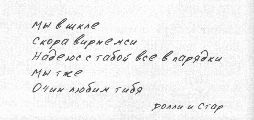 Мы в шкле
Скора вирнемси
Надеюс с табой все в парядки
Мы тже
Очин любим тибя
Долли и Стар